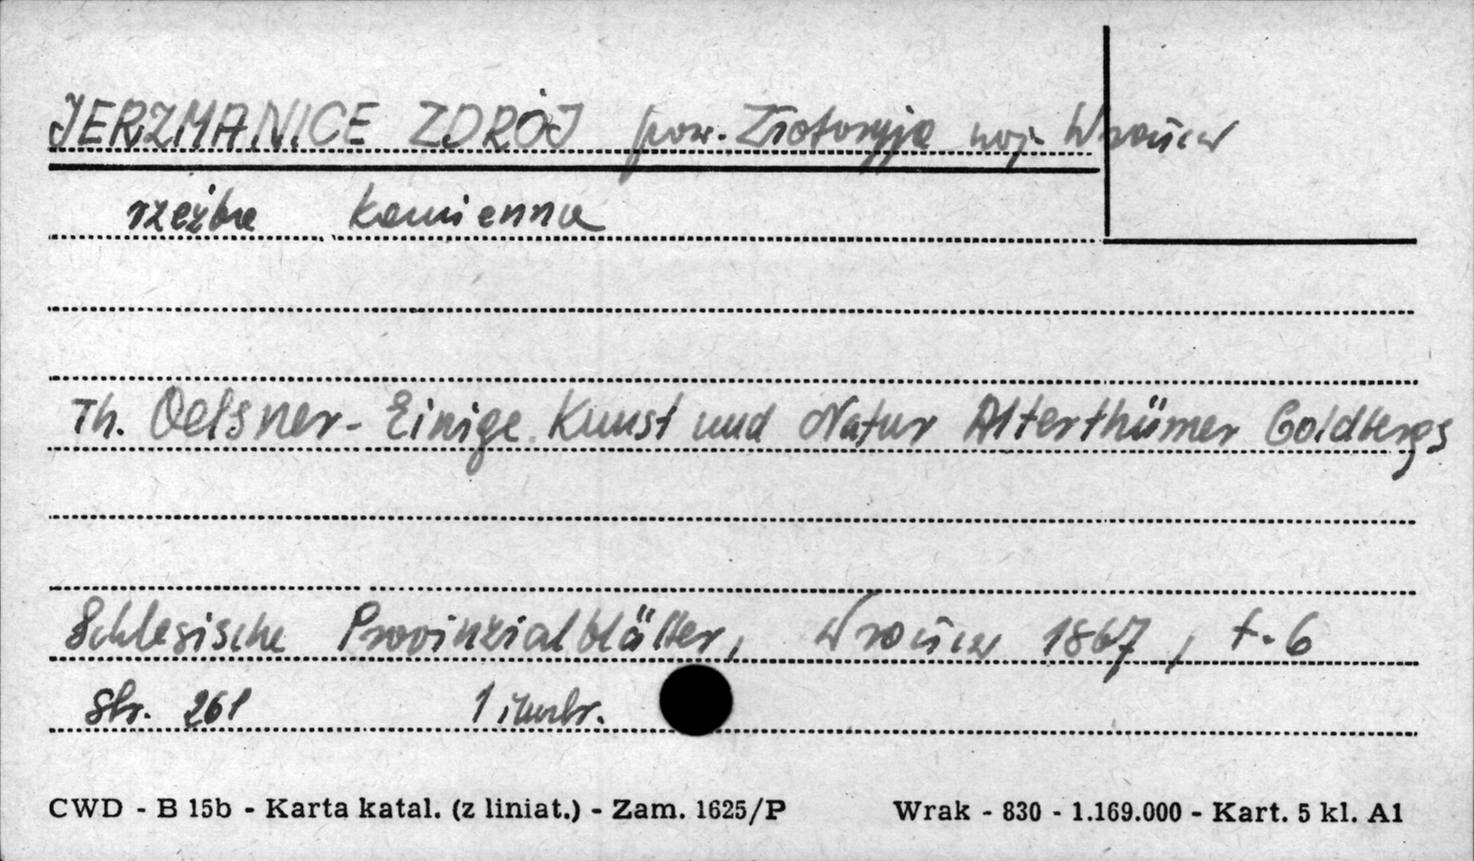 JERZMANICE ZDRÓJ pow. Złotoryja woj. Wrocław
rzeźba kamienna
Th. Oelsner - Einige Kunst und Natur Alterthümer Goldbergs
Schlesische Provinzialblätter, Wrocław 1867, t. 6
Str. 261 1 ilustr.
CWD - B 15b - Karta katal. (z liniat.) - Zam. 1625/P Wrak - 830 - 1.169.000 - Kart. 5 kl. A1